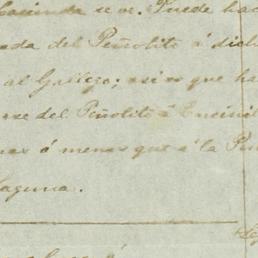 Hacienda se or. Puede hac
ada del Peñolito á dich
al Gallego; asi es que ha
rse del Peñolito á Encinil
mas ó menos que á la Pu
Laguna.